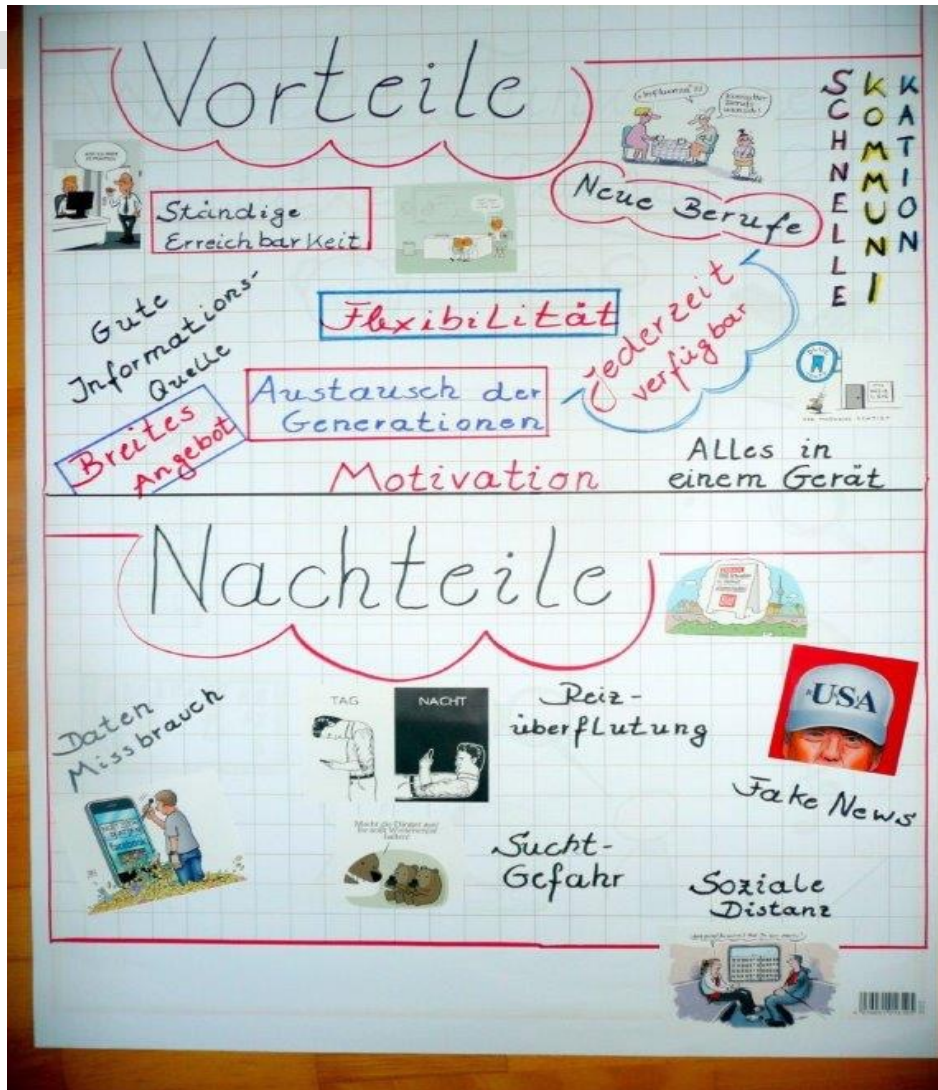 Vorteile
SCHNELLE
KOMMUNI
KATION
Ständige
Erreichbarkeit
Neue Berufe
Gute
Informations-
Quelle
Flexibilität
Jederzeit
verfügbar
Breites
Angebot
Austausch der
Generationen
Motivation
Alles in
einem Gerät
Nachteile
Daten
Missbrauch
TAG
NACHT
Reiz-
überflutung
USA
Fake News
facebook
Sucht-
Gefahr
Soziale
Distanz